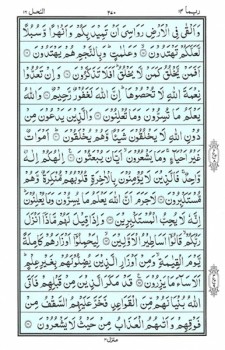 ربما ١٤
٣٥٠
النحل ١٦
وَاَلْقٰى فِى الْاَرْضِ رَوَاسِىَ اَنْ تَمِيْدَ بِكُمْ وَاَنْهٰرًا وَّسُبُلًا
لَّعَلَّكُمْ تَهْتَدُوْنَ ۙ وَعَلٰمٰتٍ ؕ وَبِالنَّجْمِ هُمْ يَهْتَدُوْنَ
اَفَمَنْ يَّخْلُقُ كَمَنْ لَّا يَخْلُقُ ؕ اَفَلَا تَذَكَّرُوْنَ وَاِنْ تَعُدُّوْا
نِعْمَةَ اللّٰهِ لَا تُحْصُوْهَا ؕ اِنَّ اللّٰهَ لَغَفُوْرٌ رَّحِيْمٌ وَاللّٰهُ
يَعْلَمُ مَا تُسِرُّوْنَ وَمَا تُعْلِنُوْنَ وَالَّذِيْنَ يَدْعُوْنَ مِنْ
دُوْنِ اللّٰهِ لَا يَخْلُقُوْنَ شَيْئًا وَّهُمْ يُخْلَقُوْنَ ؕ اَمْوَاتٌ
غَيْرُ اَحْيَآءٍ ۚ وَمَا يَشْعُرُوْنَ ۙ اَيَّانَ يُبْعَثُوْنَ اِلٰهُكُمْ اِلٰهٌ
وَّاحِدٌ ۚ فَالَّذِيْنَ لَا يُؤْمِنُوْنَ بِالْاٰخِرَةِ قُلُوْبُهُمْ مُّنْكِرَةٌ وَّهُمْ
مُّسْتَكْبِرُوْنَ لَا جَرَمَ اَنَّ اللّٰهَ يَعْلَمُ مَا يُسِرُّوْنَ وَمَا يُعْلِنُوْنَ ؕ
اِنَّهٗ لَا يُحِبُّ الْمُسْتَكْبِرِيْنَ وَاِذَا قِيْلَ لَهُمْ مَّاذَاۤ اَنْزَلَ
رَبُّكُمْ ۙ قَالُوْۤا اَسَاطِيْرُ الْاَوَّلِيْنَ ۙ لِيَحْمِلُوْۤا اَوْزَارَهُمْ كَامِلَةً
يَّوْمَ الْقِيٰمَةِ ۙ وَمِنْ اَوْزَارِ الَّذِيْنَ يُضِلُّوْنَهُمْ بِغَيْرِ عِلْمٍ ؕ
اَلَا سَآءَ مَا يَزِرُوْنَ قَدْ مَكَرَ الَّذِيْنَ مِنْ قَبْلِهِمْ فَاَتَى
اللّٰهُ بُنْيَانَهُمْ مِّنَ الْقَوَاعِدِ فَخَرَّ عَلَيْهِمُ السَّقْفُ مِنْ
فَوْقِهِمْ وَاَتٰىهُمُ الْعَذَابُ مِنْ حَيْثُ لَا يَشْعُرُوْنَ
منزل ٣